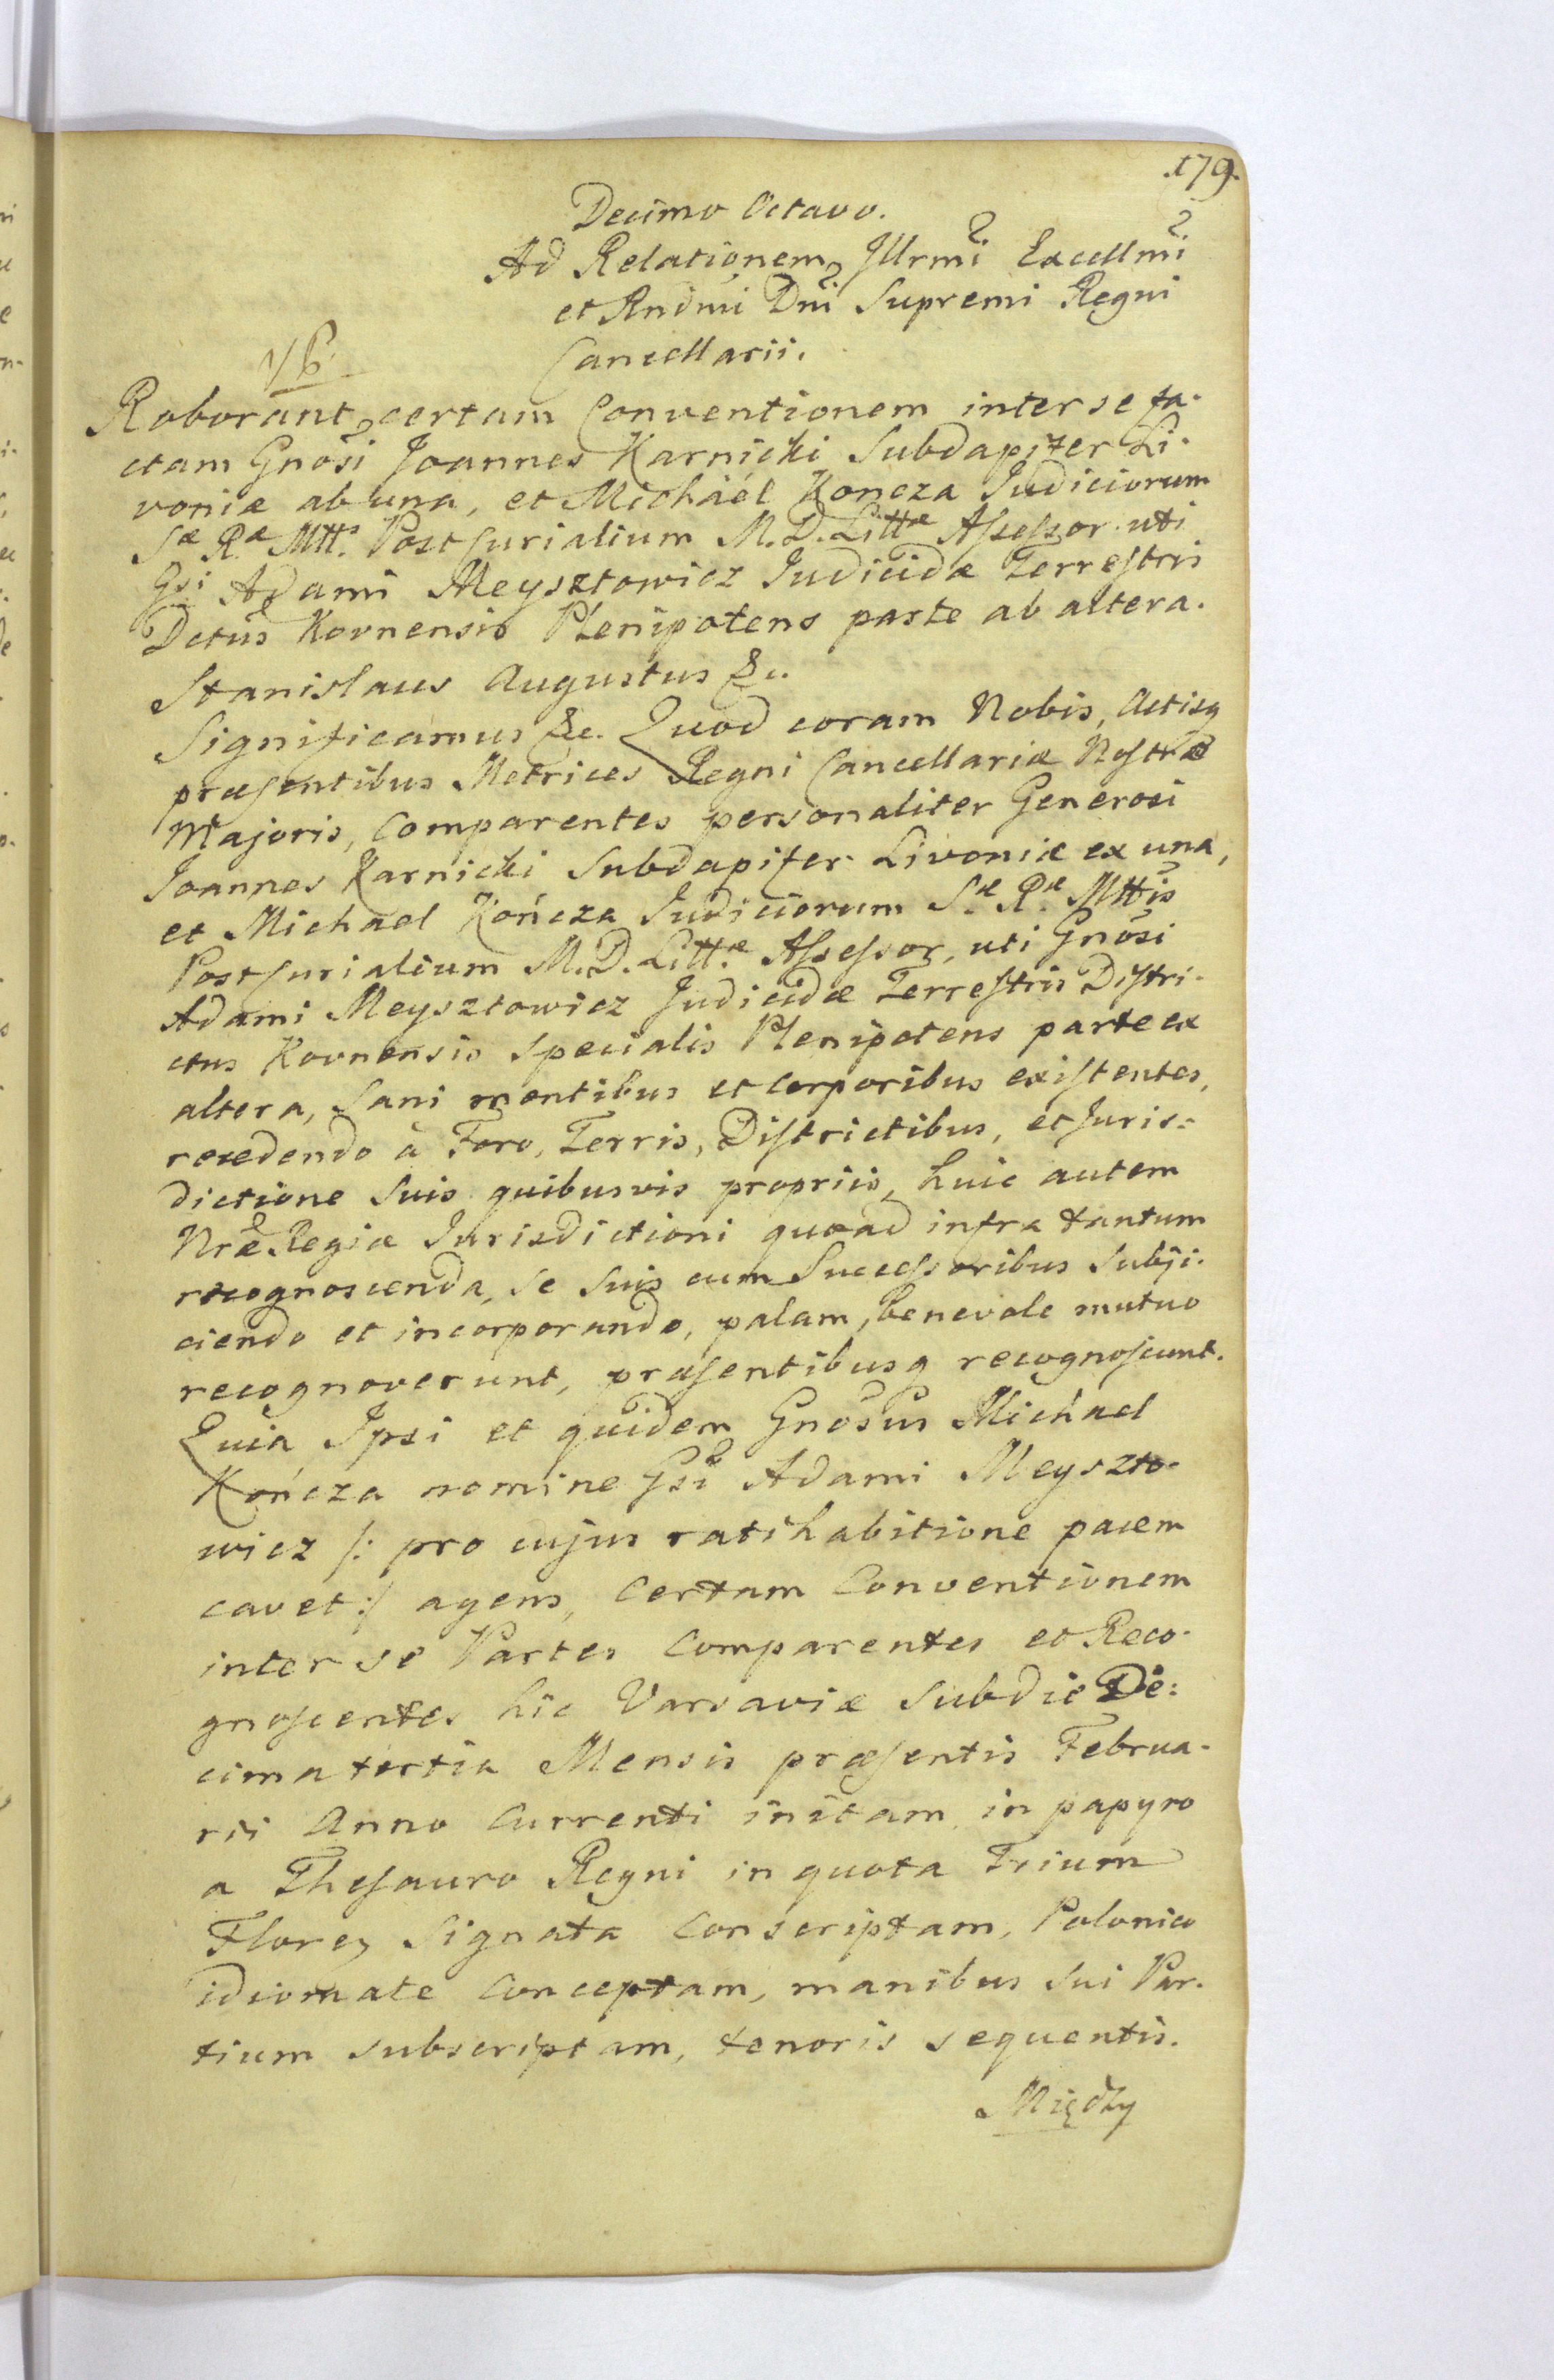 .179.
Decimo Octavo.
Ad Relationem Illrmi Excellmi
et Rndmi Dni Supremi Regni
Cancellarii.
Roborant certam Conventionem inter se fa-
ctam Gnosi Joannes Karnicki Subdapifer Li-
voniæ ab una, et Michaél Koncza Judiciorum
Sæ Ræ Mtt. PostCurialium M. D. Littæ Aſseſsor uti
Gsi Adami Meysztowicz Judicidæ Terreſtris
Dctus Kovnensis Plenipotens parte ab altera.
Stanislaus Augustus &c.
Significamus &c. Quod coram Nobis, Actisq
præſentibus Metrices Regni Cancellariæ Noſtræ
Majoris, Comparentes personaliter Generosi
Joannes Karnicki Subdapifer Livoniæ ex una,
et Michael Kończa Judiciorum S.æ R.æ Mttis
PostCurialium M. D. Litt.æ Aſseſsor, uti Gnosi
Adami Meysztowicz Judicidæ Terreſtris Diſtri-
ctus Kovnensis specialis Plenipotens parte ex
altera, Sani mentibus et Corporibus exiſtentes,
recedendo à Foro, Terris, Diſtrictibus, et Juris-
dictione Suis quibusvis propriis, huic autem
Nræ Regiæ Jurisdictioni quoad infra tantum
recognoscenda, se suis cum Succeſsoribus Subji-
ciendo et incorporando, palam, benevole mutuo
recognoverunt, præſentibusq recognoſcunt.
Quia Ipsi et quidem Gnosus Michael
Kończa nomine Gsi Adami Meyszto-
wicz /: pro cujus ratihabitione pacem
cavet :/ agens, Certam Conventionem
inter se Partes Comparentes et Reco-
gnoſcentes hic Varsaviæ Sub die De:
cima tertia Mensis præſentis Februa-
rii Anno Currenti initam in papyro
a Theſauro Regni in quota Trium
Floren Signata Conscriptam, Polonico
idiomate Conceptam, manibus Sui Par-
tium subscriptam, tenoris sequentis.
Między